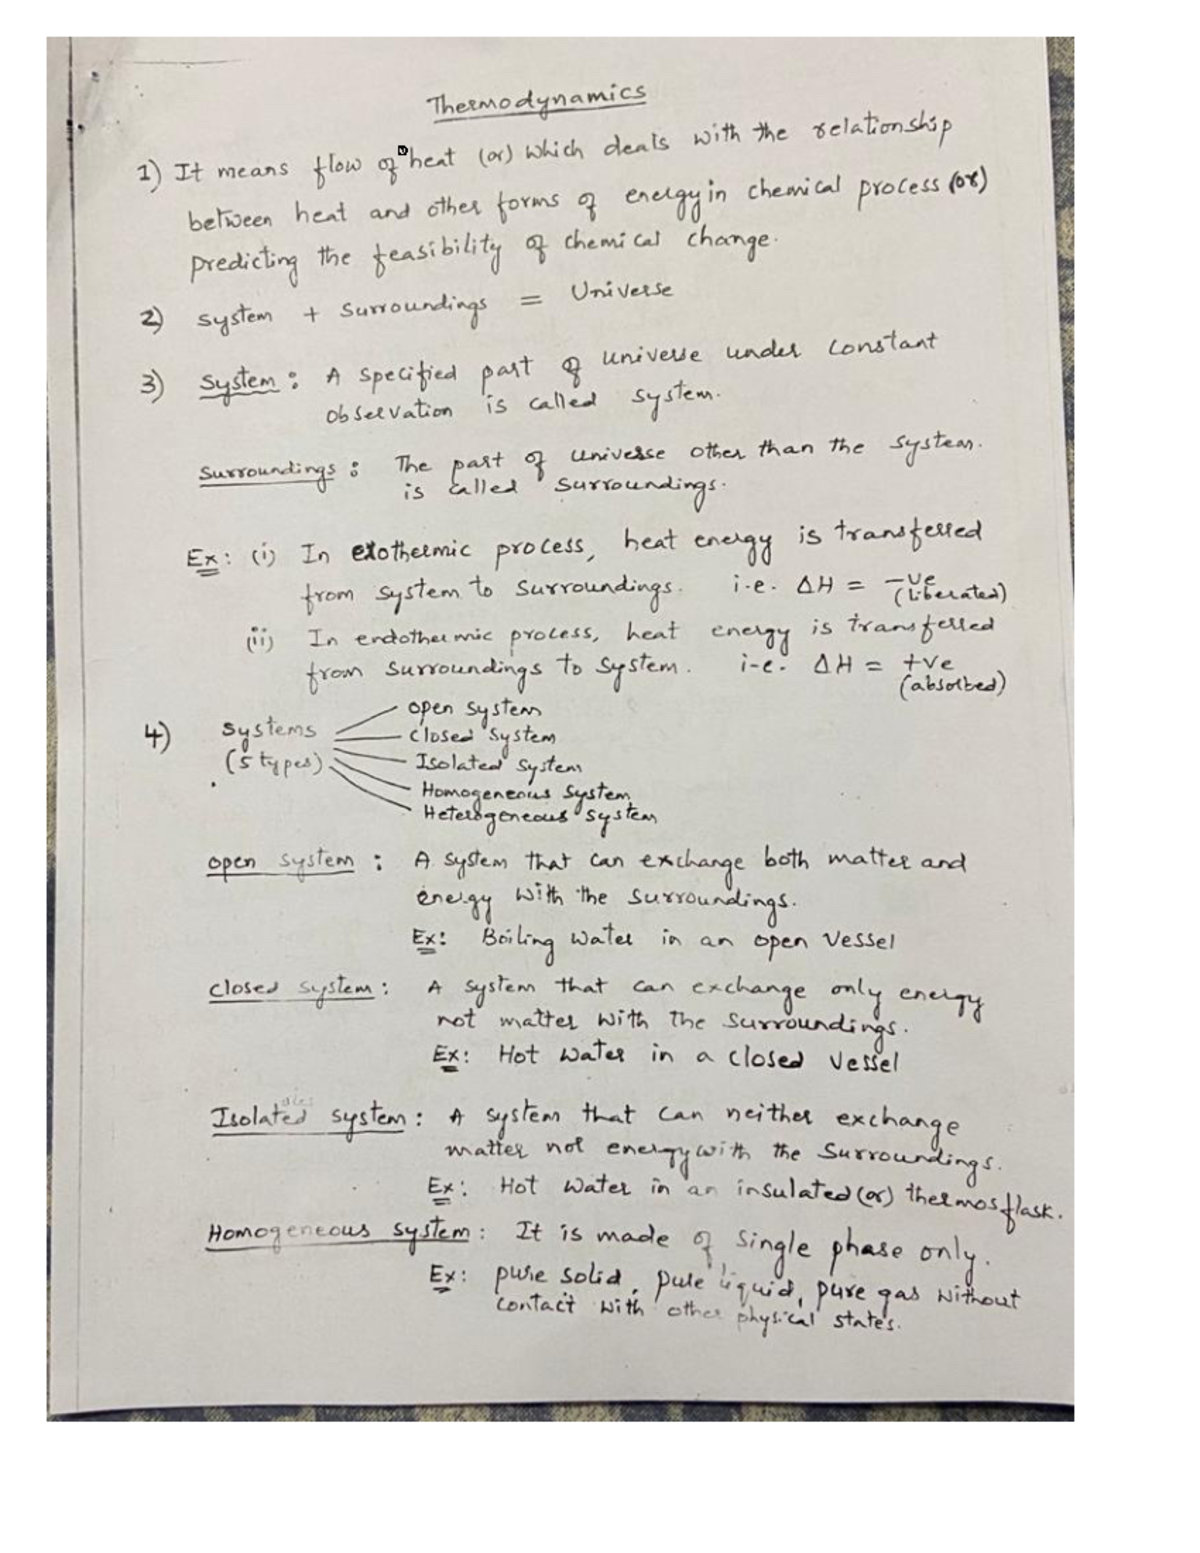 Thermodynamics
1) It means flow of heat (or) which deals with the relationship
between heat and other forms of energy in chemical process (or)
predicting the feasibility of chemical change.
2) system + Surroundings = Universe
3) System : A specified part of universe under constant
observation is called system.
Surroundings : The part of universe other than the system.
is called surroundings.
Ex : (i) In exothermic process, heat energy is transferred
from system to surroundings. i.e. ΔH = -ve
(liberated)
(ii) In endothermic process, heat energy is transferred
from surroundings to system. i-e. ΔH = +ve
(absorbed)
4) Systems
(5 types)
open system
closed system
Isolated system
Homogeneous system
Heterogeneous system
open system : A system that can exchange both matter and
energy with the surroundings.
Ex: Boiling water in an open vessel
closed system : A system that can exchange only energy
not matter with the surroundings.
Ex: Hot water in a closed vessel
Isolated system : A system that can neither exchange
matter nor energy with the surroundings.
Ex: Hot water in an insulated (or) thermos flask.
Homogeneous system : It is made of single phase only.
Ex: pure solid, pure liquid, pure gas without
contact with other physical states.